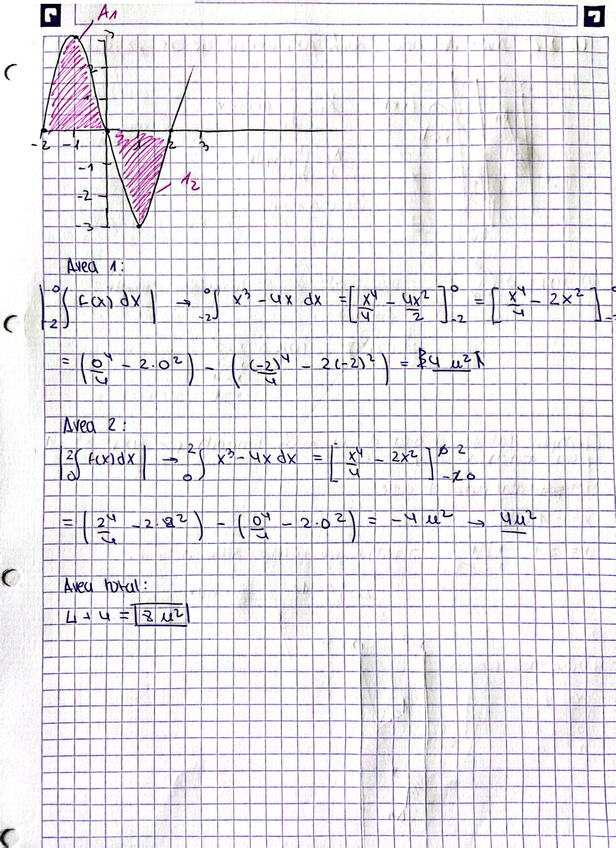 A1
3
2
-2 -1 1 2 3
-1
-2
A2
-3
Area 1:
|⁰₋₂∫ f(x) dx| → ⁰₋₂∫ x³ - 4x dx = [x⁴/4 - 4x²/2]⁰₋₂ = [x⁴/4 - 2x²]⁰₋₂
= (0⁴/4 - 2·0²) - ((-2)⁴/4 - 2(-2)²) = 4 u²
Area 2:
|²₀∫ f(x) dx| → ²₀∫ x³ - 4x dx = [x⁴/4 - 2x²]²₀
= (2⁴/4 - 2·2²) - (0⁴/4 - 2·0²) = -4 u² → 4u²
Area total:
4 + 4 = 8 u²